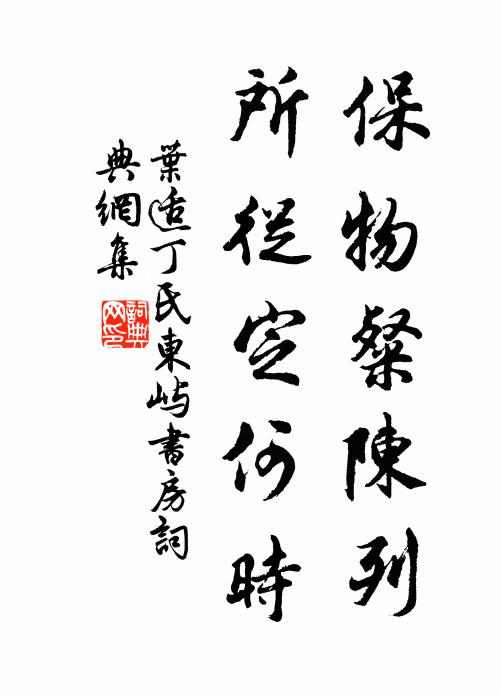 保物粲陳列
所從定何時
葉适丁氏東屿書房詞
典網集
詞典网印